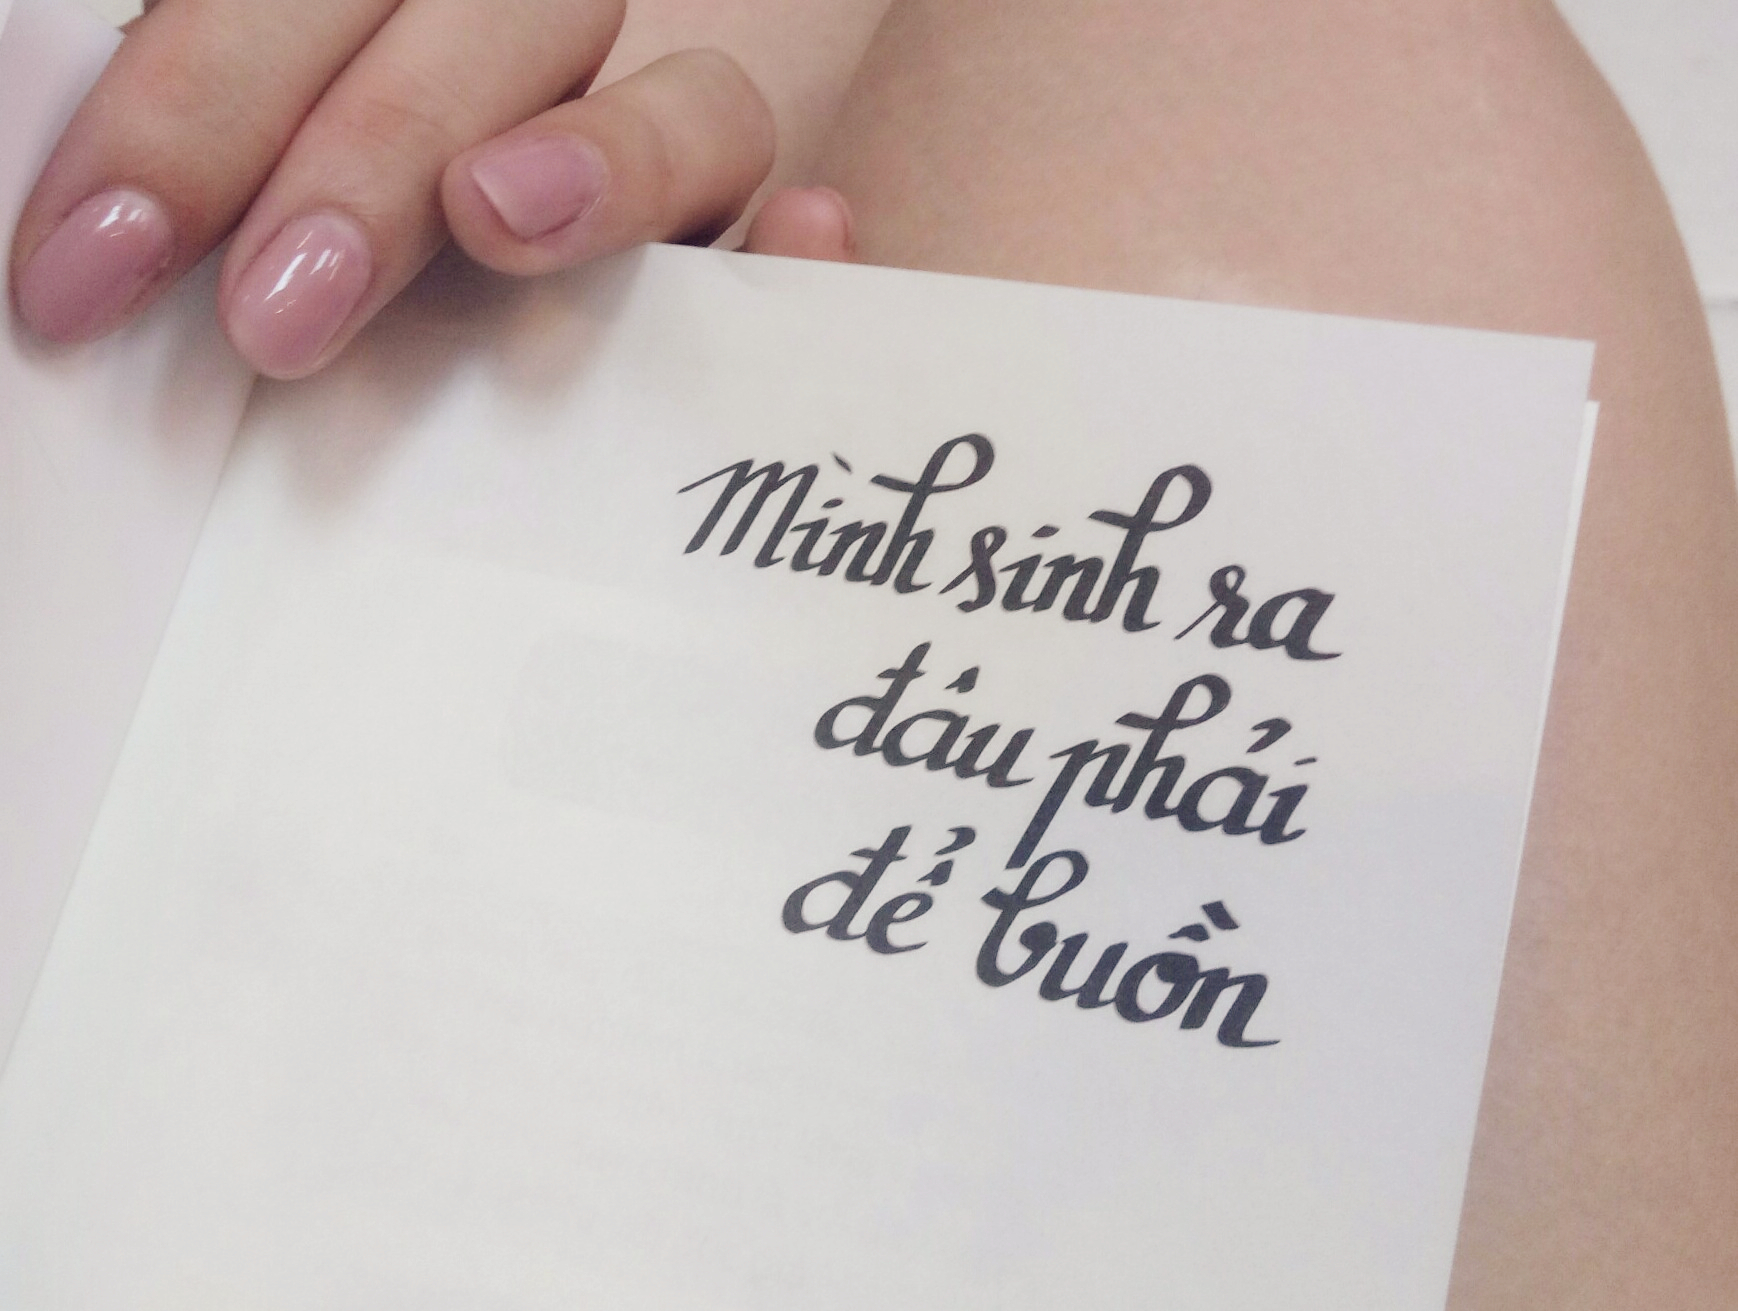 Mình sinh ra
đâu phải
để buồn